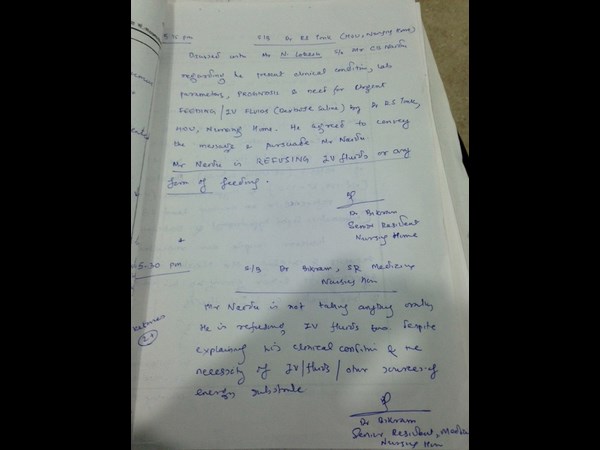 S/B Dr RS Tonk (HOU, Nursing Home)
Discussed with Mr N. Lokesh S/o Mr CB Naidu
regarding the present clinical condition, Lab
parameters, PROGNOSIS & need for Urgent
FEEDING/IV FLUIDS (Dextrose Saline) by Dr RS Tonk,
HOU, Nursing Home. He agreed to convey
the message & pursuade Mr Naidu.
Mr Naidu is REFUSING IV fluids or any
form of feeding.
Dr Bikram
Senior Resident
Nursing Home
5-30 pm
S/B Dr Bikram, SR Medicine
Nursing Home
Mr Naidu is not taking anything orally
He is refusing IV fluids too despite
explaining his clinical condition & the
necessity of IV/fluids/other sources of
energy substrate
Dr Bikram
Senior Resident, Medicine
Nursing Home